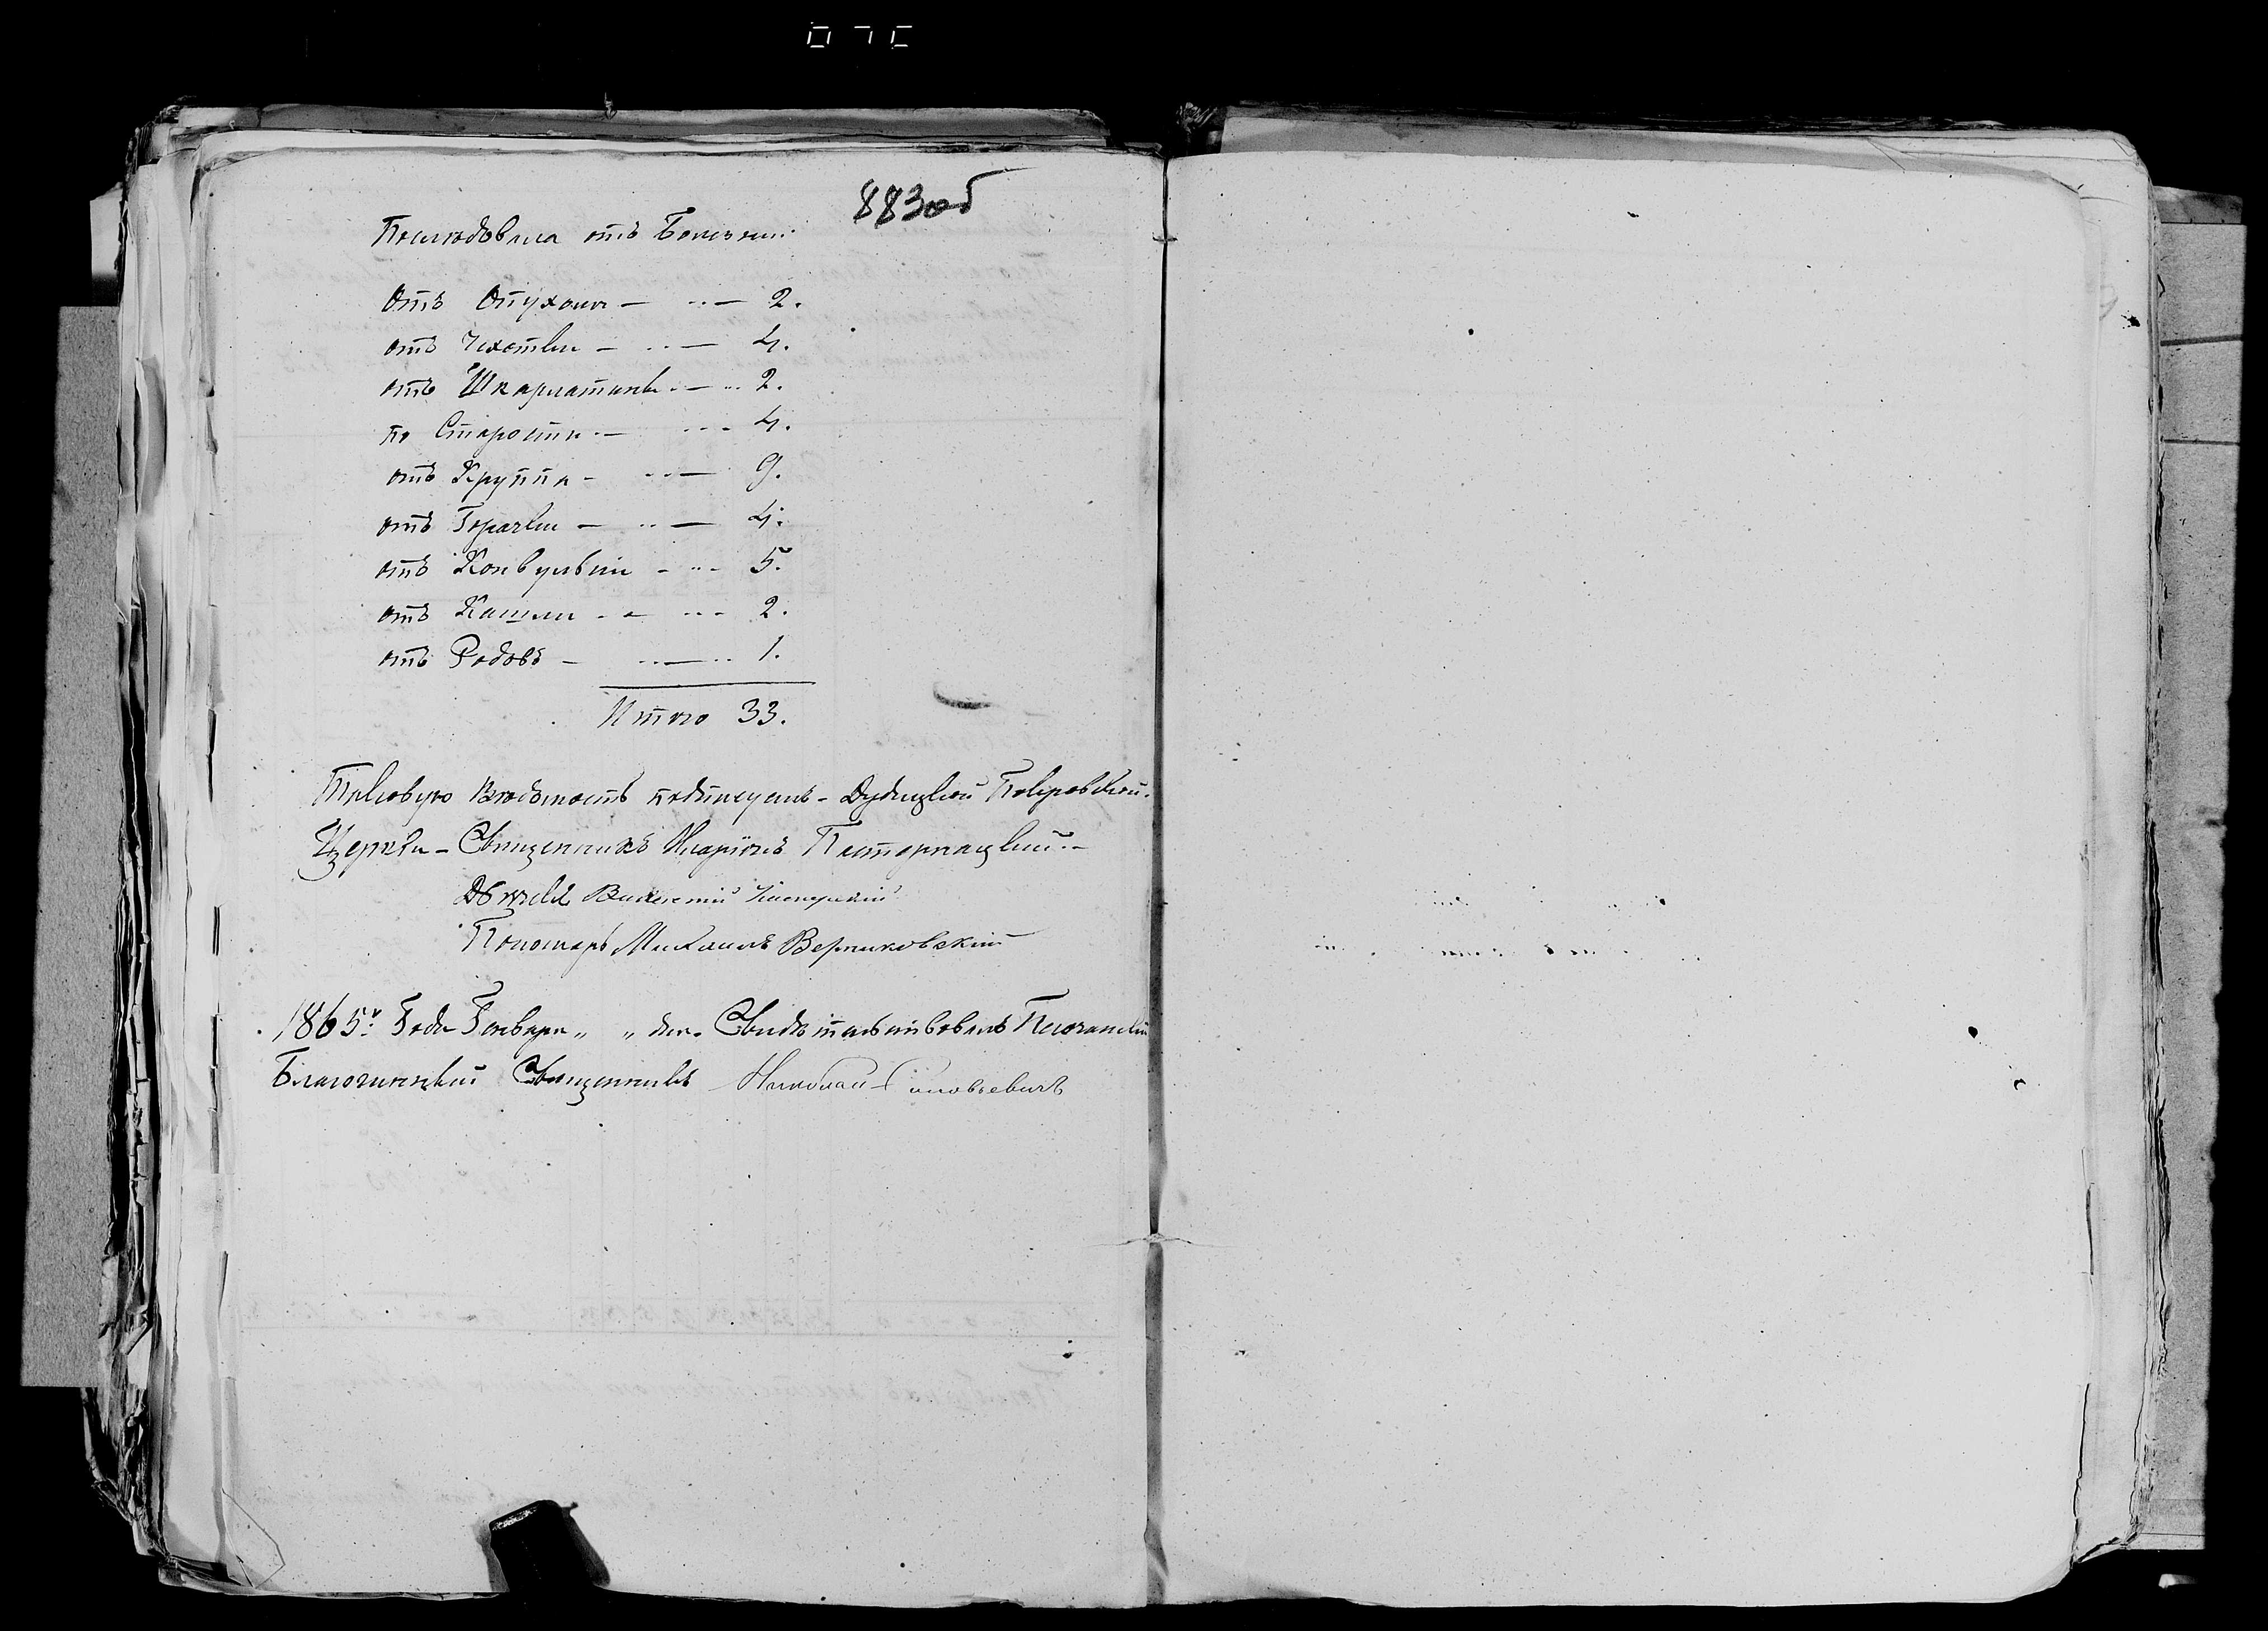 883об
Послѣдовала отъ Болѣзни:
Отъ Опухоли — 2.
отъ Чахотки — 4.
отъ Шкарлатины — 2.
по Старости — 4.
отъ Круппа — 9.
отъ Горячки — 4.
отъ Конвульсіи — 5.
отъ Кашля — 2.
отъ Родовъ — 1.
Итого 33.
Таковую Вѣдомость подписуемъ - Дудицкой Покровской
Церкви - Священникъ Иларіонъ Пастернацкій.
Дьячекъ Викентій
Пономарь Михаилъ Верниковскій
1865. Года Генваря „ „ дня. Свидѣтельствовалъ
Благочинный Священникъ Николай